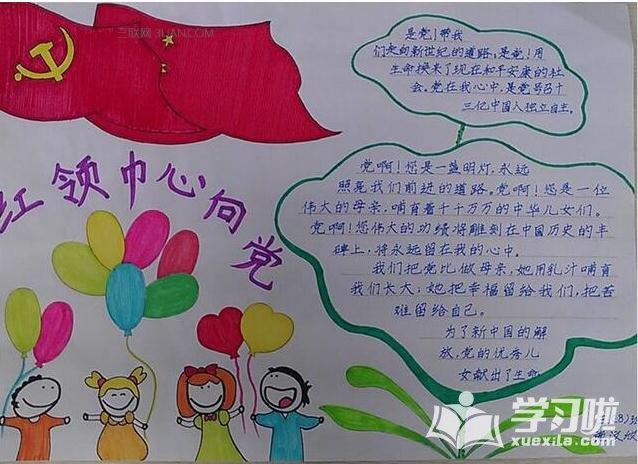 三联网 3LIAN.COM
红领巾心向党
是党!带我
们走向新世纪的道路,是党!用
生命换来了现在和平安康的社
会。党在我心中,是党号召十
三亿中国人独立自主。
党啊!您是一盏明灯,永远
照亮我们前进的道路。党啊!您是一位
伟大的母亲,哺育着千千万万的中华儿女们。
党啊!您伟大的功绩将雕刻在中国历史的丰
碑上,将永远留在我的心中。
我们把党比做母亲,她用乳汁哺育
我们长大;她把幸福留给我们,把苦
难留给自己。
为了新中国的解
放,党的优秀儿
女献出了生命
学习啦
xuexila.com